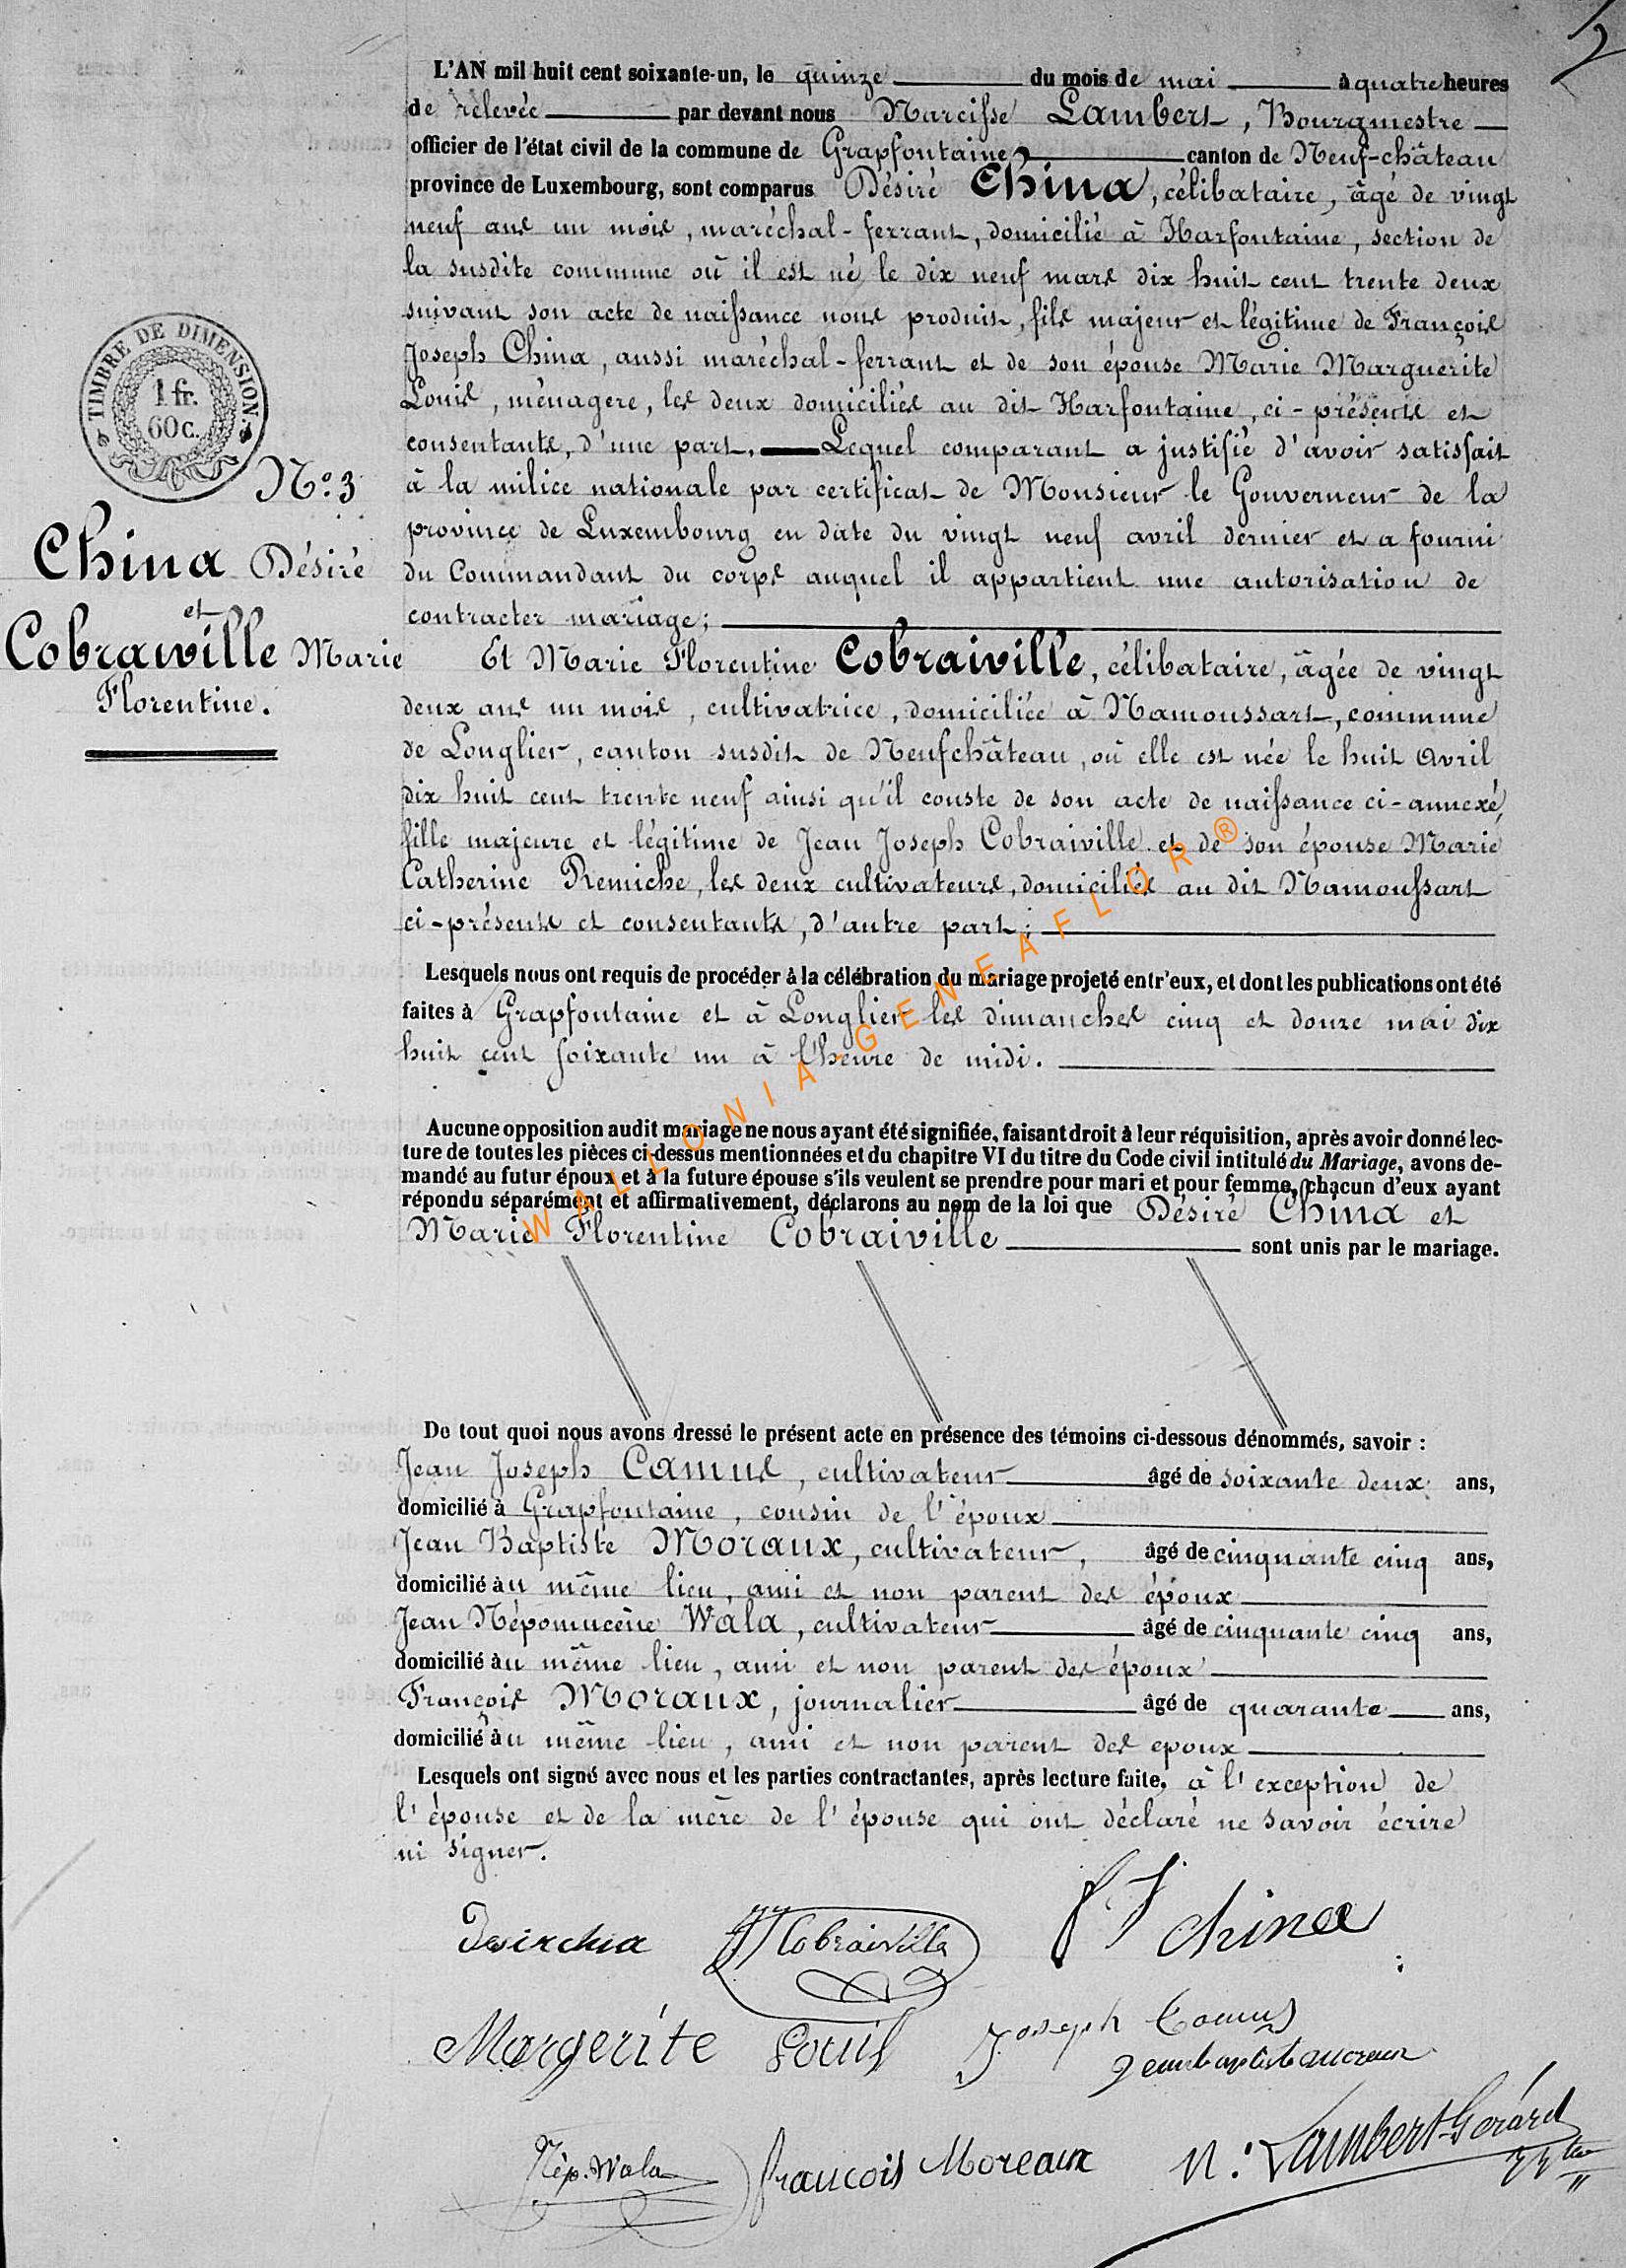 2
L'AN mil huit cent soixante-un, le quinze du mois de mai à quatre heures
de relevée par devant nous Narcisse Lambert, Bourgmestre
officier de l'état civil de la commune de Grapfontaine canton de Neuf-château
province de Luxembourg, sont comparus Désiré China, célibataire, âgé de vingt
neuf ans un mois, maréchal-ferrant, domicilié à Harfontaine, section de
la susdite commune où il est né le dix neuf mars dix huit cent trente deux
suivant son acte de naissance nous produit, fils majeur et légitime de François
Joseph China, aussi maréchal-ferrant et de son épouse Marie Marguerite
Louis, ménagère, les deux domiciliés au dit Harfontaine, ci-présents et
consentants, d'une part. Lequel comparant a justifié d'avoir satisfait
à la milice nationale par certificat de Monsieur le Gouverneur de la
province de Luxembourg en date du vingt neuf avril dernier et a fourni
du Commandant du corps auquel il appartient une autorisation de
contracter mariage;
TIMBRE DE DIMENSION
1 fr.
60 c.
N° 3
China Désiré
et
Cobraiville Marie
Florentine.
Et Marie Florentine Cobraiville, célibataire, âgée de vingt
deux ans un mois, cultivatrice, domiciliée à Namoussart, commune
de Longlier, canton susdit de Neufchâteau, où elle est née le huit Avril
dix huit cent trente neuf ainsi qu'il conste de son acte de naissance ci-annexé,
fille majeure et légitime de Jean Joseph Cobraiville et de son épouse Marie
Catherine Remiche, les deux cultivateurs, domiciliés au dit Namoussart
ci-présents et consentants, d'autre part;
Lesquels nous ont requis de procéder à la célébration du mariage projeté entr'eux, et dont les publications ont été
faites à Grapfontaine et à Longlier les dimanches cinq et douze mai dix
huit cent soixante un à l'heure de midi.
Aucune opposition audit mariage ne nous ayant été signifiée, faisant droit à leur réquisition, après avoir donné lec-
ture de toutes les pièces ci-dessus mentionnées et du chapitre VI du titre du Code civil intitulé du Mariage, avons de-
mandé au futur époux et à la future épouse s'ils veulent se prendre pour mari et pour femme, chacun d'eux ayant
répondu séparément et affirmativement, déclarons au nom de la loi que Désiré China et
Marie Florentine Cobraiville sont unis par le mariage.
WALLONIA GENEAFLOR®
De tout quoi nous avons dressé le présent acte en présence des témoins ci-dessous dénommés, savoir :
Jean Joseph Camus, cultivateur âgé de soixante deux ans,
domicilié à Grapfontaine, cousin de l'époux
Jean Baptiste Moraux, cultivateur, âgé de cinquante cinq ans,
domicilié au même lieu, ami et non parent des époux
Jean Népomucène Wala, cultivateur âgé de cinquante cinq ans,
domicilié au même lieu, ami et non parent des époux
François Moraux, journalier âgé de quarante ans,
domicilié au même lieu, ami et non parent des epoux
Lesquels ont signé avec nous et les parties contractantes, après lecture faite, à l'exception de
l'épouse et de la mère de l'épouse qui ont déclaré ne savoir écrire
ni signer.
JJ Cobraiville
f J china
Margerite Louis
Joseph Camus
Jean baptiste moreaux
Nép. Wala
francois Moreaux
N: Lambert-Gérard